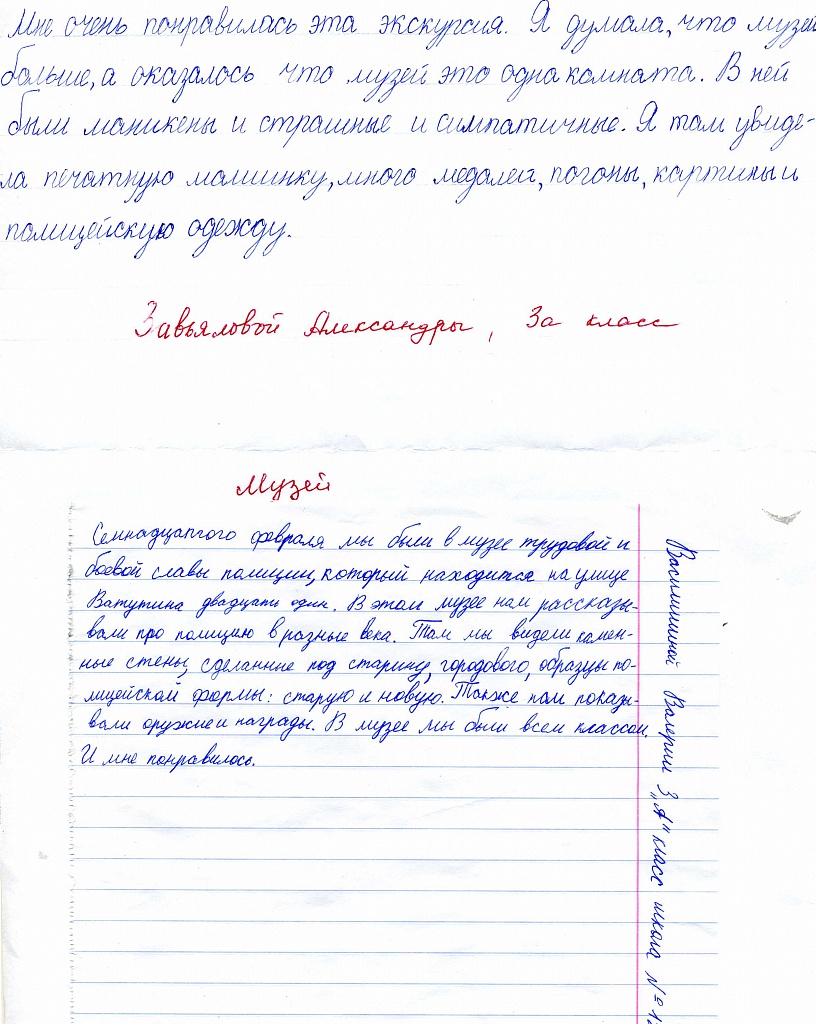 Мне очень понравилась эта экскурсия. Я думала, что музей
больше, а оказалось что музей это одна комната. В ней
были маникены и страшные и симпатичные. Я там увиде-
ла печатную машинку, много медалей, погоны, картины и
полицейскую одежду.
Завьяловой Александры, 3а класс
Музей
Семнадцатого февраля мы были в музее трудовой и
боевой славы полиции, который находится на улице
Ватутина двадцать один. В этом музее нам рассказы-
вали про полицию в разные века. Там мы видели камен-
ные стены, сделанные под старину, городового, образцы по-
лицейской формы: старую и новую. Также нам показы-
вали оружие и награды. В музее мы были всем классом.
И мне понравилось.
Валерии 3 „А" класс школа №